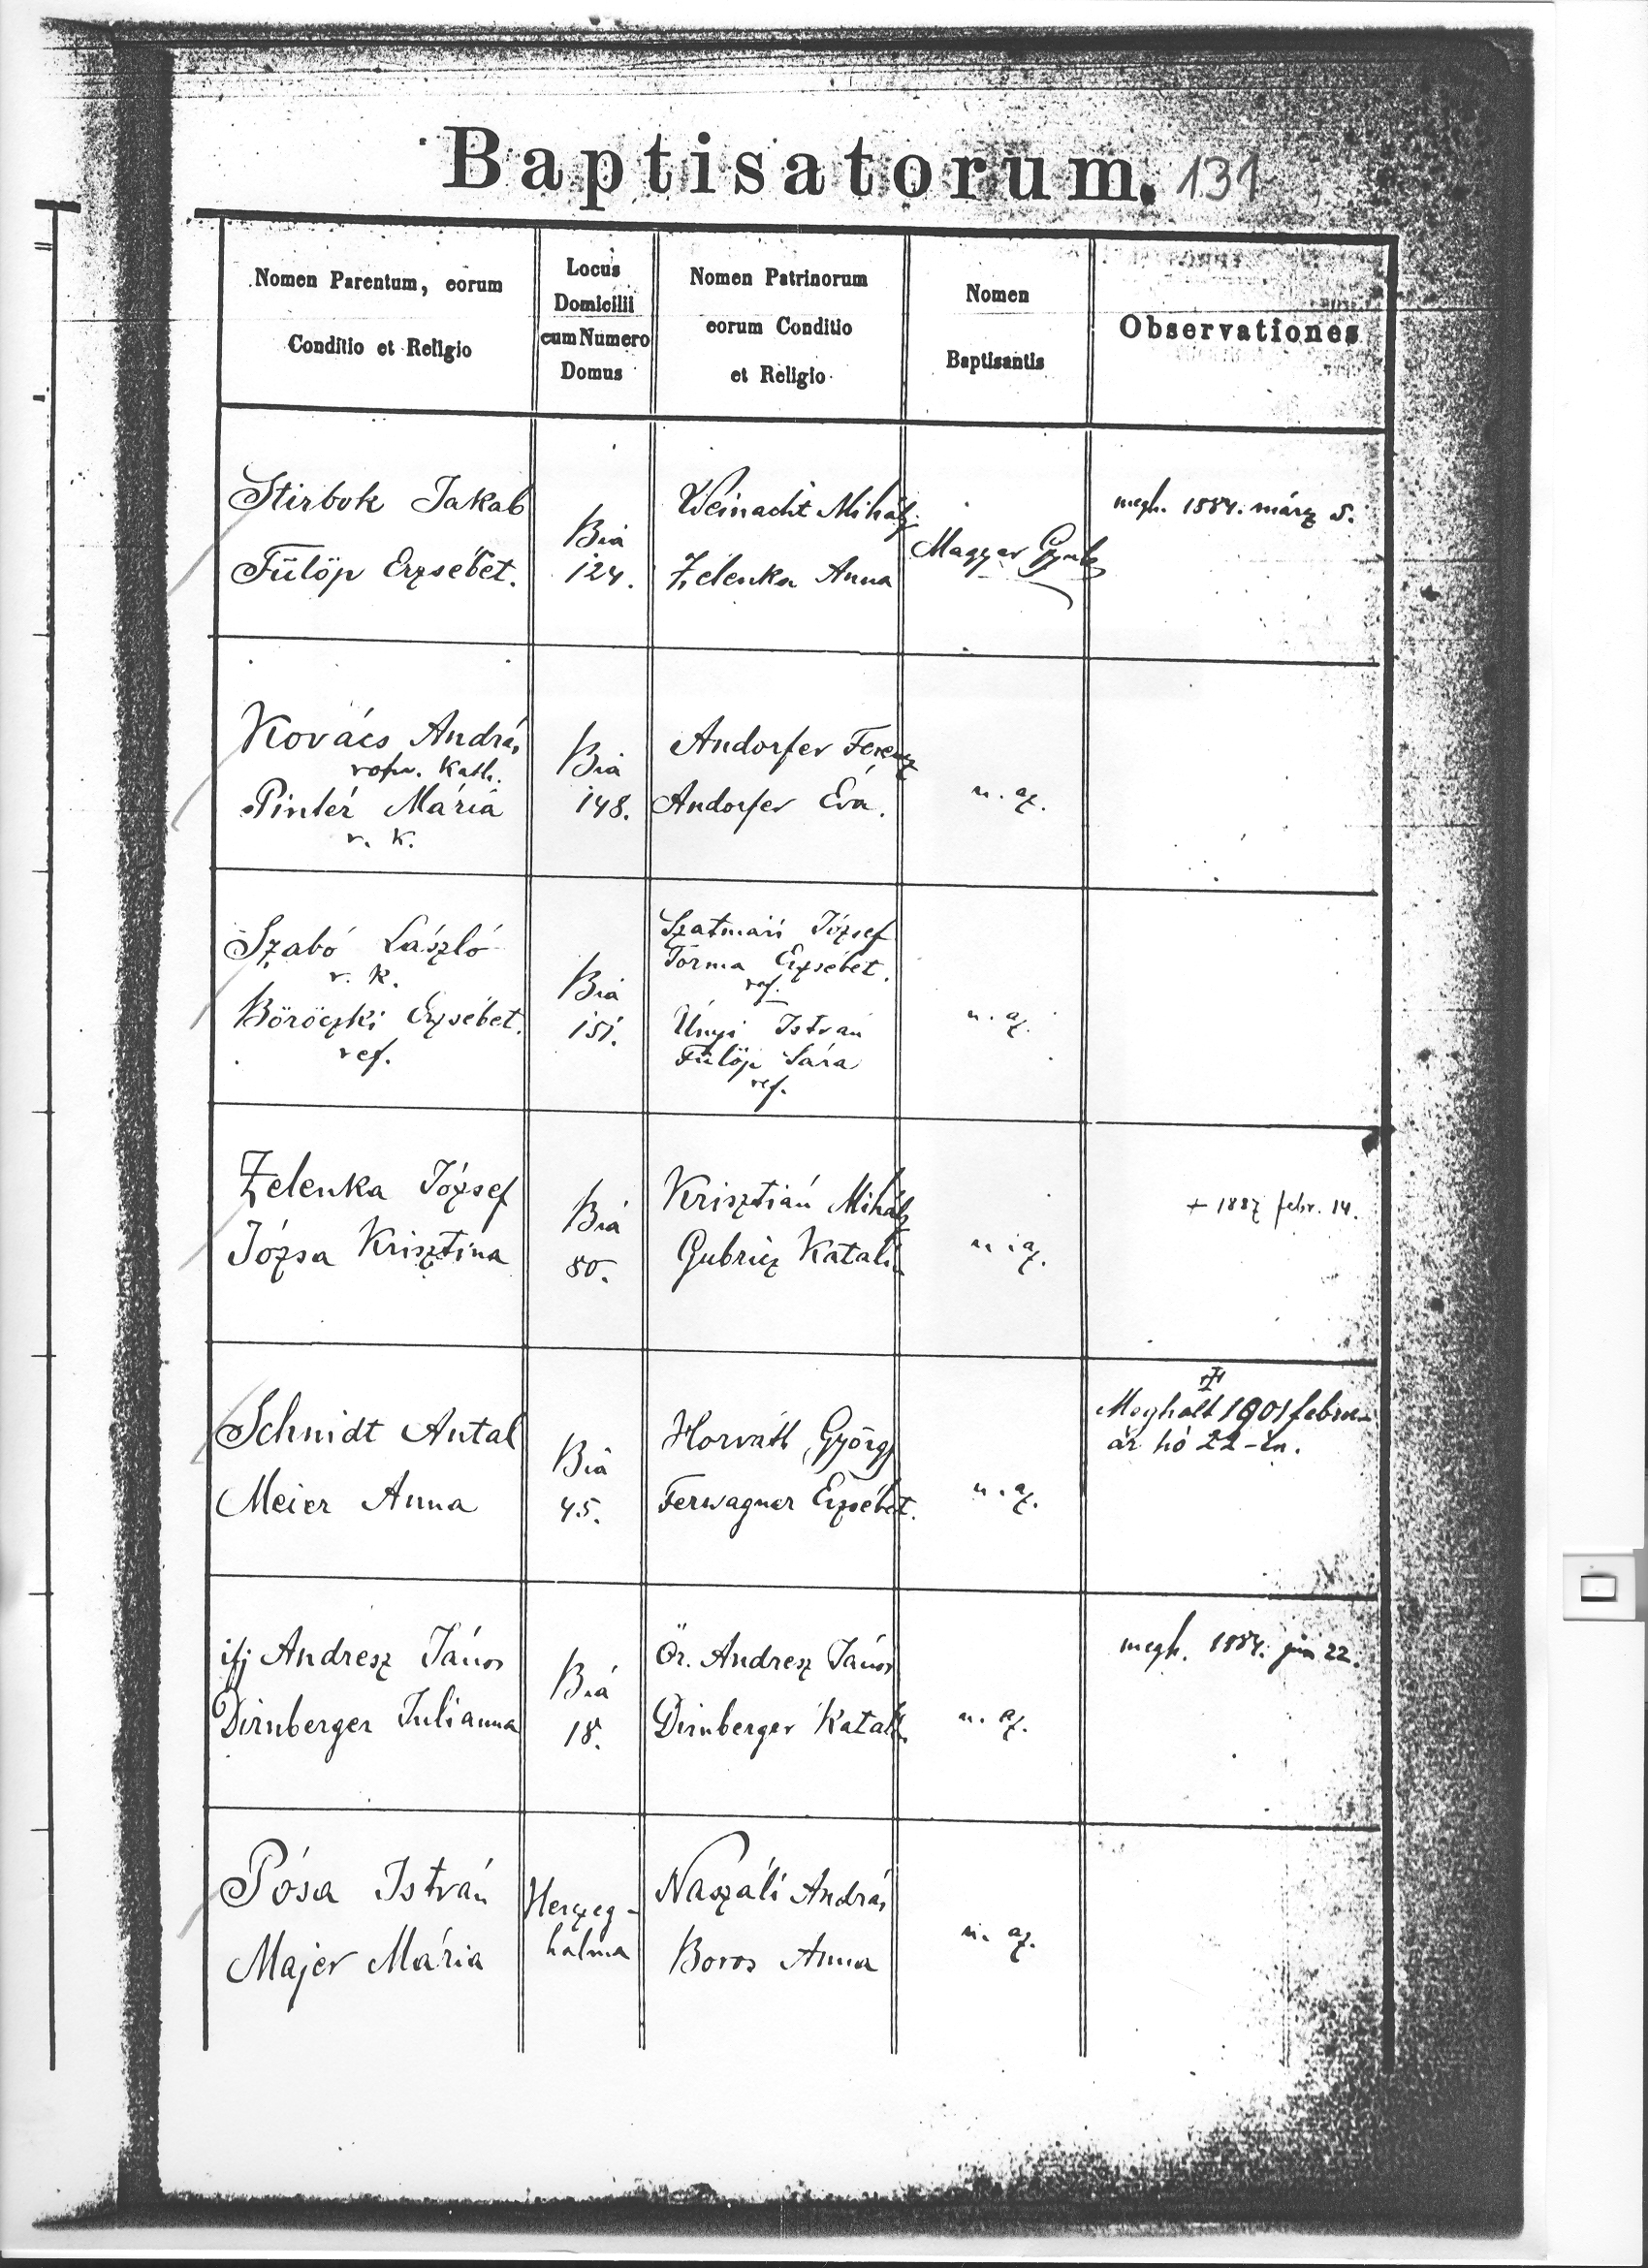 Baptisatorum. 131
Nomen Parentum, eorum
Conditio et Religio
Locus
Domicilii
cum Numero
Domus
Nomen Patrinorum
eorum Conditio
et Religio
Nomen
Baptisantis
Observationes
Stirbok Jakab
Fülöp Erzsébet.
Bia
124.
Weinacht Mihály
Zelenka Anna
Magyar Gyula
megh. 1884. márcz 5.
Kovács András
rom. Kath.
Pintér Mária
r. k.
Bia
148.
Andorfer Ferencz
Andorfer Éva.
u. az.
Szabó László
r. k.
Böröczki Erzsébet.
ref.
Bia
151.
Szatmári József
Torma Erzsébet.
ref.
Únyi István
Fülöp Sára
ref.
u. az.
Zelenka József
Józsa Krisztina
Bia
80.
Krisztián Mihály
Gubricz Katalin
u. az.
+ 1887 febr. 14.
Schmidt Antal
Meier Anna
Bia
45.
Horváth György
Ferwagner Erzsébet.
u. az.
Meghalt 1901 febru-
ár hó 22-én.
ifj Andresz János
Dirnberger Julianna
Bia
18.
Ör. Andresz János
Dirnberger Katalin
u. az.
megh. 1884. jún 22.
Pósa István
Majer Mária
Herczeg-
halma
Naszáli András
Boros Anna
u. az.